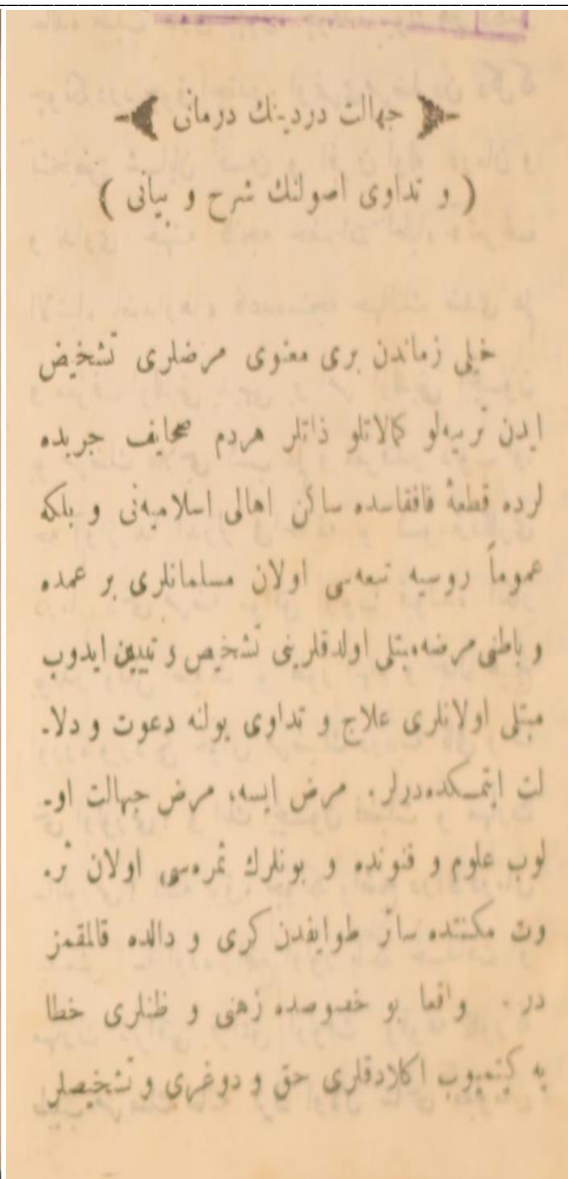 جهالت دردینك درمانی
( و تداوی اصولنك شرح و بیانی )
خیلی زماندن بری معنوی مرضلری تشخیض
ایدن تربیه‌لو کمالاتلو ذاتلر هردم صحایف جریده
لرده قطعهٔ قافقاسده ساکن اهالی اسلامیه‌نی و بلکه
عموماً روسیه تبعه‌سی اولان مسلمانلری بر عمده
و باطنی مرضه مبتلی اولدقلرینی تشخیص و تیین ایدوب
مبتلی اولانلری علاج و تداوی یولنه دعوت و دلا-
لت ایتمکده‌درلر. مرض ایسه، مرض جهالت او-
لوب علوم و فنونده و بونلرك ثمره‌سی اولان ثر-
وت مکنتده سائر طوایفدن کری و دالده قالمقمز
در . واقعا بو خصوصده زهنی و ظنلری خطا
یه کیتمیوب اکلادقلری حق و دوغری و تشخیصلری